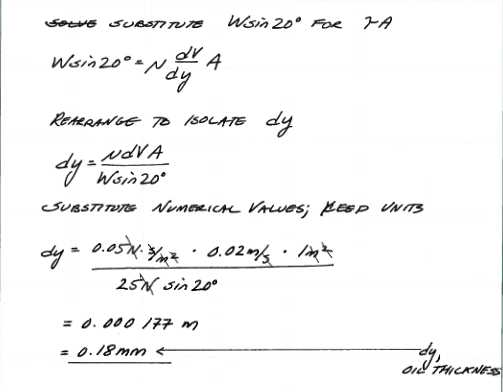 SUBSTITUTE Wsin20° FOR τA
Wsin20° = μ dV/dy A
REARRANGE TO ISOLATE dy
dy = μdVA / Wsin20°
SUBSTITUTE NUMERICAL VALUES; KEEP UNITS
dy = 0.05N·s/m² · 0.02m/s · 1m² / 25N sin20°
= 0.000177 m
= 0.18mm ← dy,
OIL THICKNESS